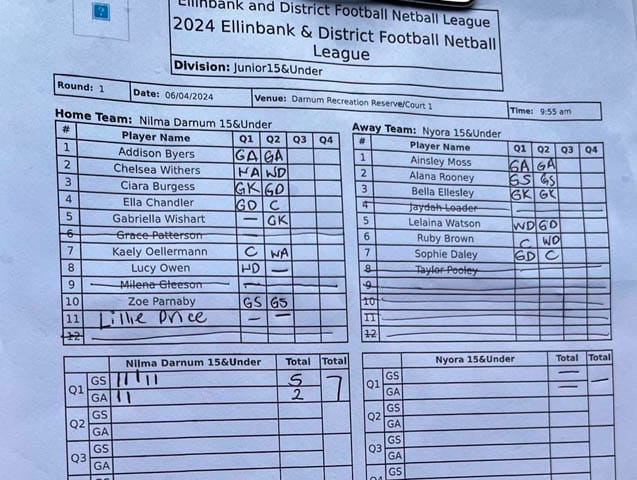 Ellinbank and District Football Netball League
2024 Ellinbank & District Football Netball
League
Division: Junior15&Under
Round: 1 Date: 06/04/2024 Venue: Darnum Recreation Reserve/Court 1 Time: 9:55 am
Home Team: Nilma Darnum 15&Under
# Player Name Q1 Q2 Q3 Q4
1 Addison Byers GA GA
2 Chelsea Withers WA WD
3 Ciara Burgess GK GD
4 Ella Chandler GD C
5 Gabriella Wishart — GK
6 Grace Patterson —
7 Kaely Oellermann C WA
8 Lucy Owen WD —
9 Milena Gleeson —
10 Zoe Parnaby GS GS
11 Lillie Price — —
12
Away Team: Nyora 15&Under
# Player Name Q1 Q2 Q3 Q4
1 Ainsley Moss GA GA
2 Alana Rooney GS GS
3 Bella Ellesley GK GK
4 Jaydah Loader
5 Lelaina Watson WD GD
6 Ruby Brown C WD
7 Sophie Daley GD C
8 Taylor Pooley
9
10
11
12
Nilma Darnum 15&Under Total Total
Q1 GS IIIII 5 7
GA II 2
Q2 GS
GA
Q3 GS
GA
Nyora 15&Under Total Total
Q1 GS — —
GA —
Q2 GS
GA
Q3 GS
GA
GS